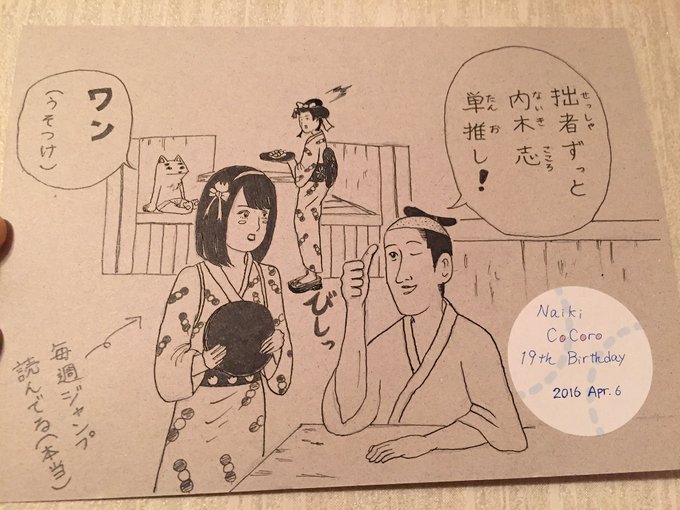 拙者ずっと
せっしゃ
内木志
ないき こころ
単推し!
たん お
ワン
(うそつけ)
びしっ
毎週ジャンプ
読んでる(本当)
Naiki
CoCoro
19th Birthday
2016 Apr. 6